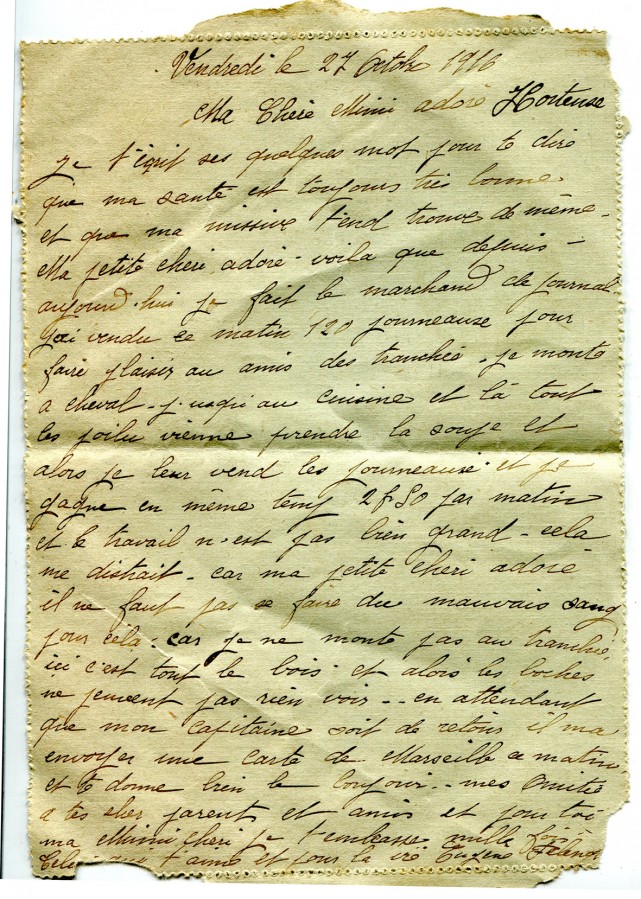 Vendredi le 27 Octobr 1916
Ma Cheré Mimi adoré Hortense
Je t'égrit ses quelques mot pour te dire
que ma santé est toujours très bonne
et que ma missive t'end trouve de même -
Ma petite cheri adoré - voila que depuis -
aujourd'hui je fait le marchand de journal
j'ai vendu ce matin 120 journeause pour
faire plaisir au amis des tranchée - je monte
a cheval - jusqu'au cuisine et là tout
les poilu vienne prendre la soupe et
alors je leur vend les journeause et je
gagne en même temp 2f50 par matin
et le travail n'est pas bien grand - cela
me distrait - car ma petite cheri adoré
il ne faut pas se faire du mauvais sang
pour cela - car je ne monte pas au tranché
ici c'est tout le bois et alors les boches
ne peuvent pas rien voir - - en attendant
que mon capitaine soit de retour il ma
envoyer une carte de Marseille ce matin
et te donne bien le bonjour - - mes Amitié
a tes cher parent et amis et pour toi
ma Mimi cheri je t'embrasse mille fois
Celui que t'aime et pour la vie Eugène